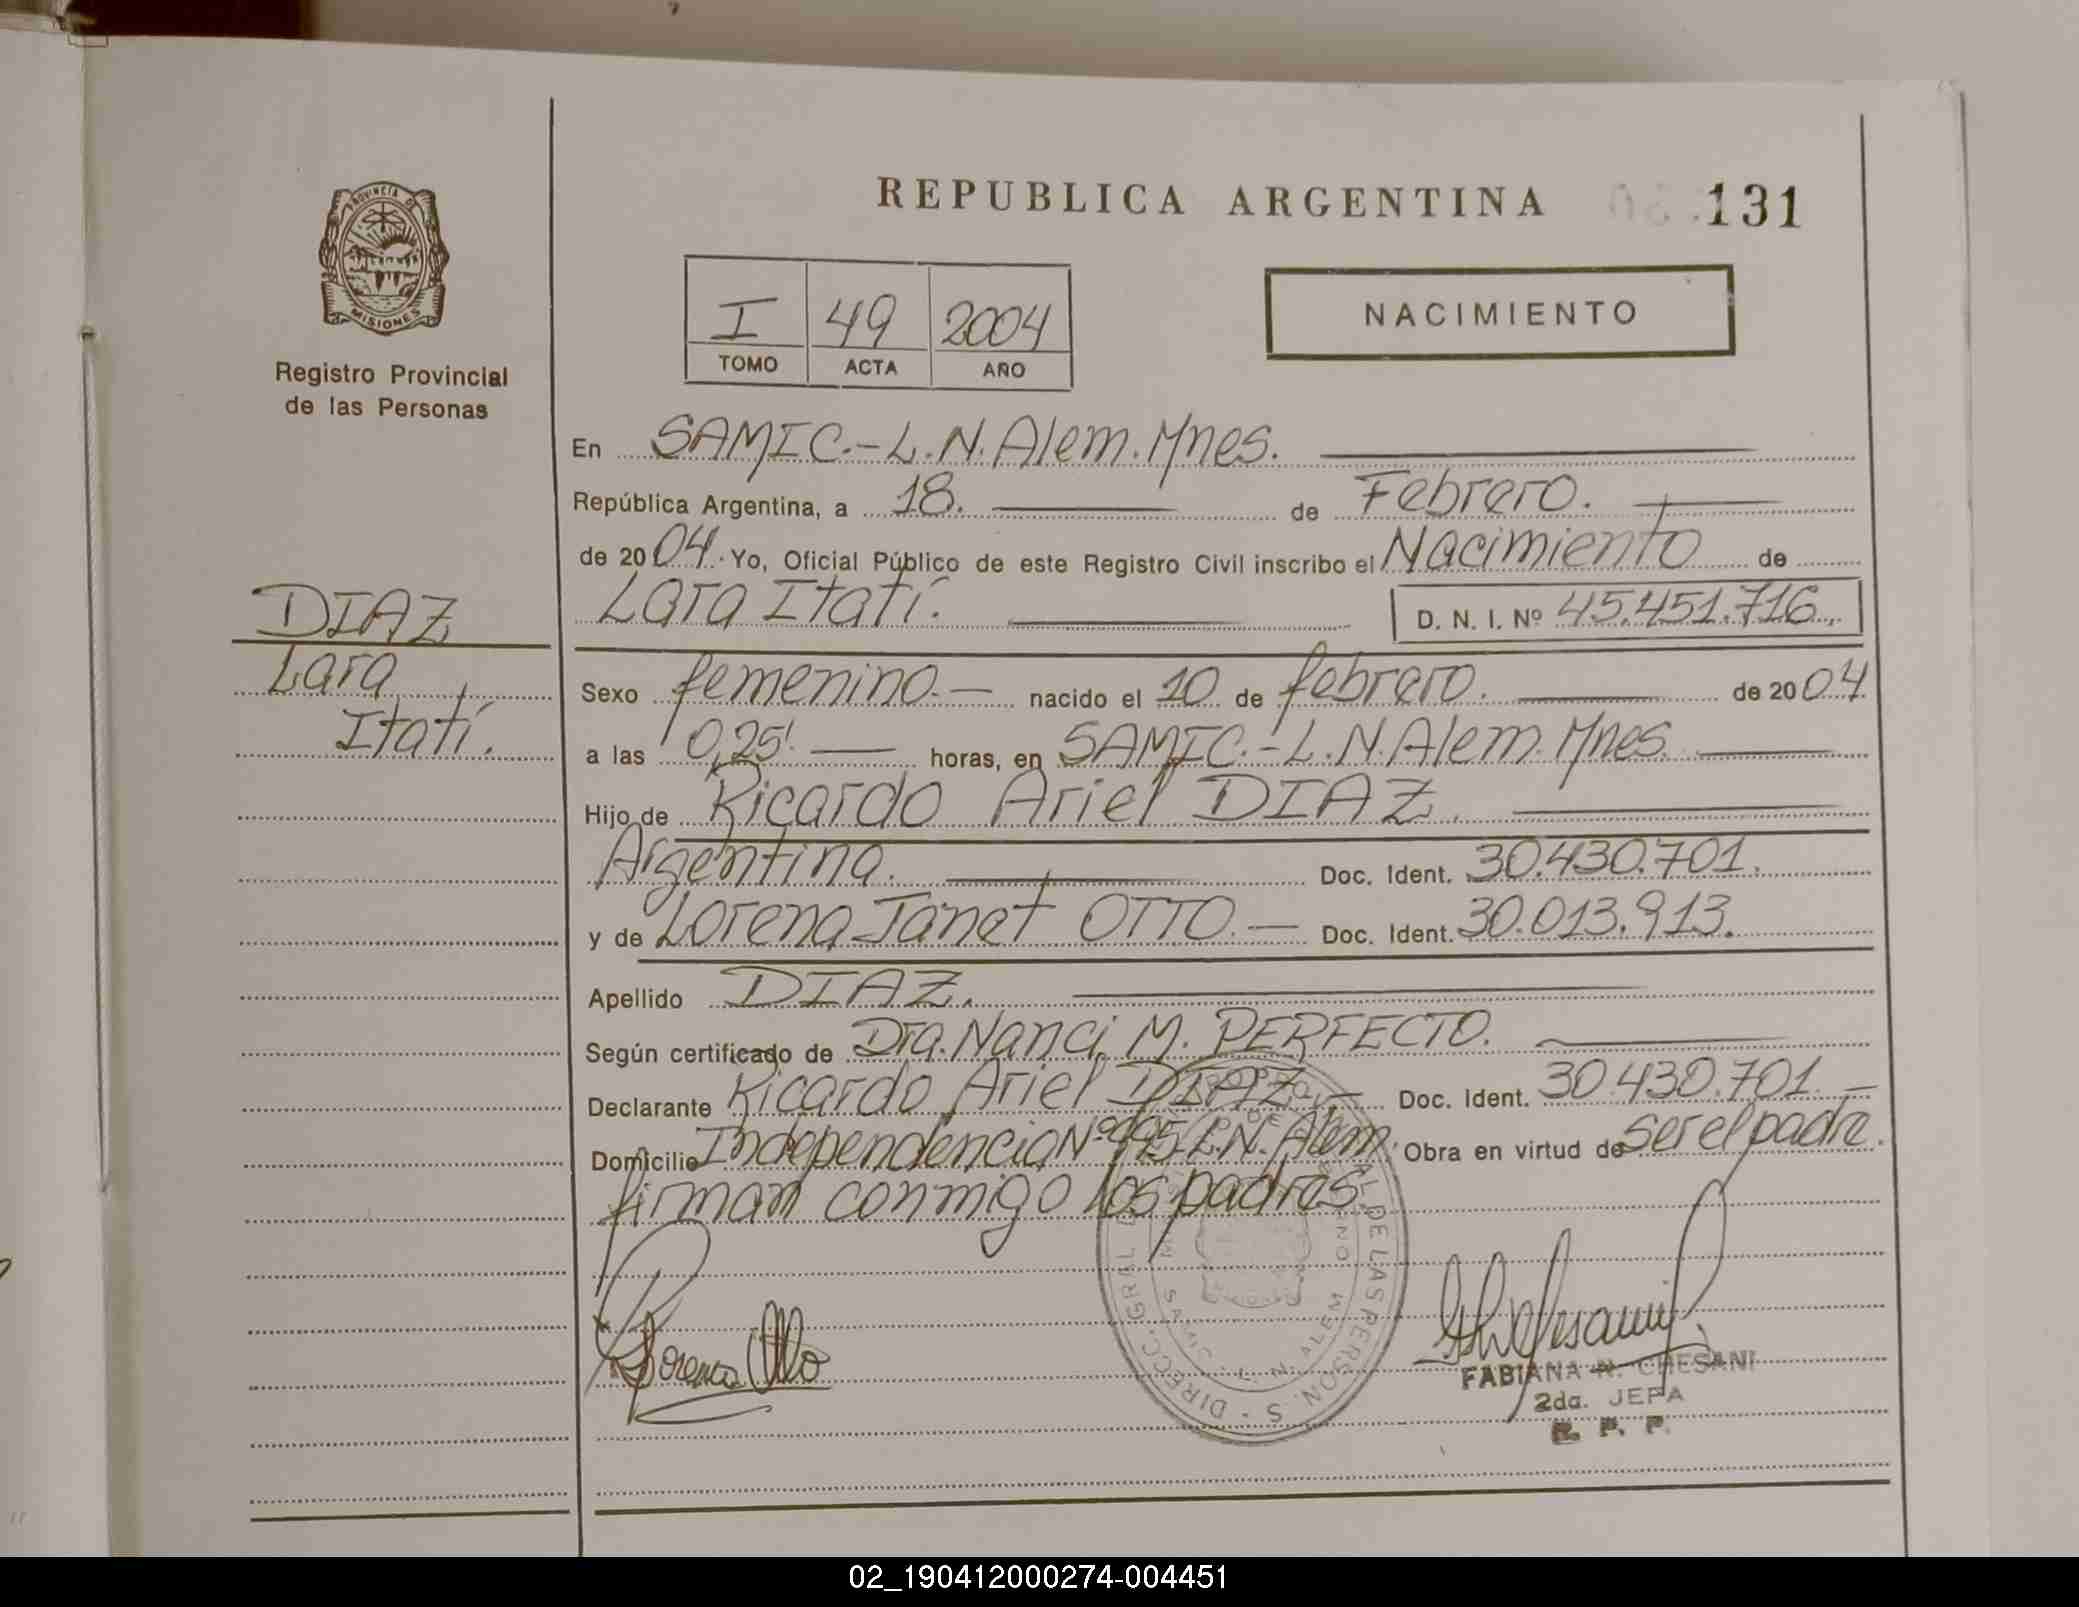 REPUBLICA ARGENTINA
131
PROVINCIA DE
MISIONES
Registro Provincial
de las Personas
I 49 2004
TOMO ACTA AÑO
NACIMIENTO
En SAMIC.-L.N.Alem.Mnes.
República Argentina, a 18. de Febrero.
de 2004. Yo, Oficial Público de este Registro Civil inscribo el Nacimiento de
Lara Itatí. D. N. I. Nº 45.451.716.
DIAZ
Lara
Itatí.
Sexo femenino.- nacido el 10 de febrero. de 2004.
a las 0,25'. horas, en SAMIC.-L.N.Alem.Mnes.
Hijo de Ricardo Ariel DIAZ.
Argentina. Doc. Ident. 30.430.701.
y de Lorena Janet OTTO.- Doc. Ident. 30.013.913.
Apellido DIAZ.
Según certificado de Dra. Nanci M. PERFECTO.
Declarante Ricardo Ariel DIAZ.- Doc. Ident. 30.430.701.-
Domicilio Independencia Nº L.N. Alem. Obra en virtud de ser el padre.
firman conmigo los padres.
Lorena Otto
DIRECC. GRAL DE LAS PERSON. S
SAMIC - L. N. ALEM
FABIANA N. CHESANI
2da. JEFA
R. P. P.
02_190412000274-004451